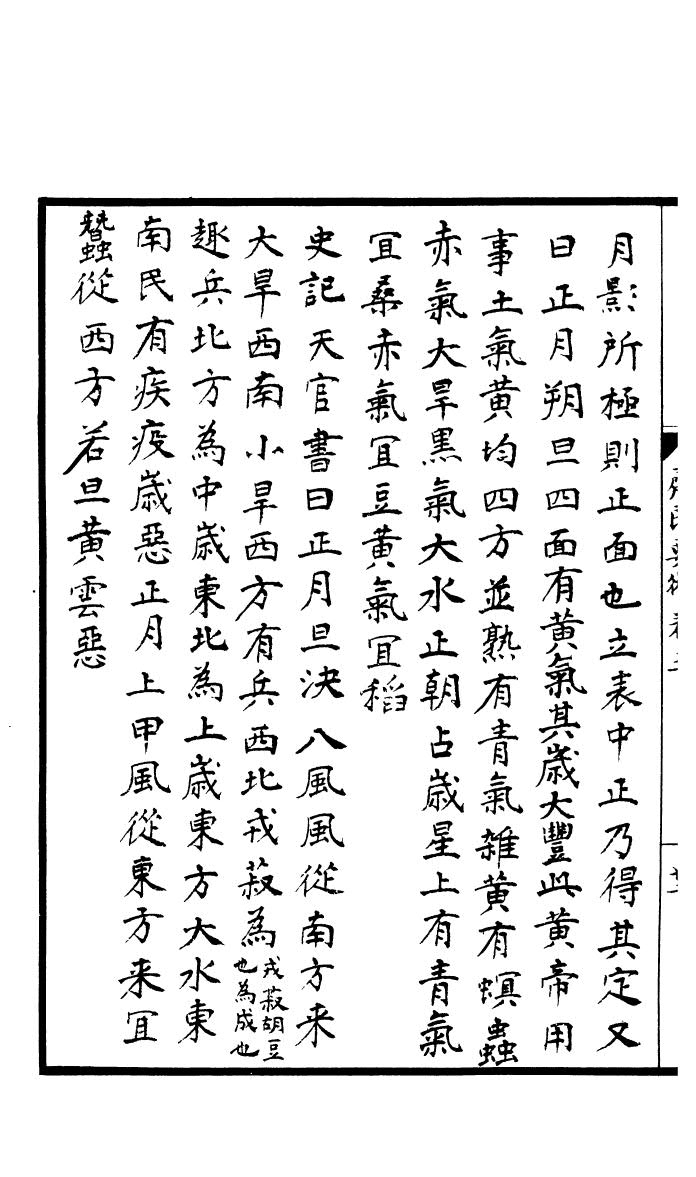 月影所極則正面也立表中正乃得其定又
曰正月朔旦四面有黄氣其歲大豐此黄帝用
事土氣黄均四方並熟有青氣雜黄有螟蟲
赤氣大旱黒氣大水正朝占歲星上有青氣
冝桑赤氣冝豆黄氣冝稻
史記天官書曰正月旦決八風風從南方来
大旱西南小旱西方有兵西北戎菽為戎菽胡豆也為成也
趣兵北方為中歲東北為上歲東方大水東
南民有疾疫歲惡正月上甲風從東方来冝
蠶從西方若旦黄雲惡